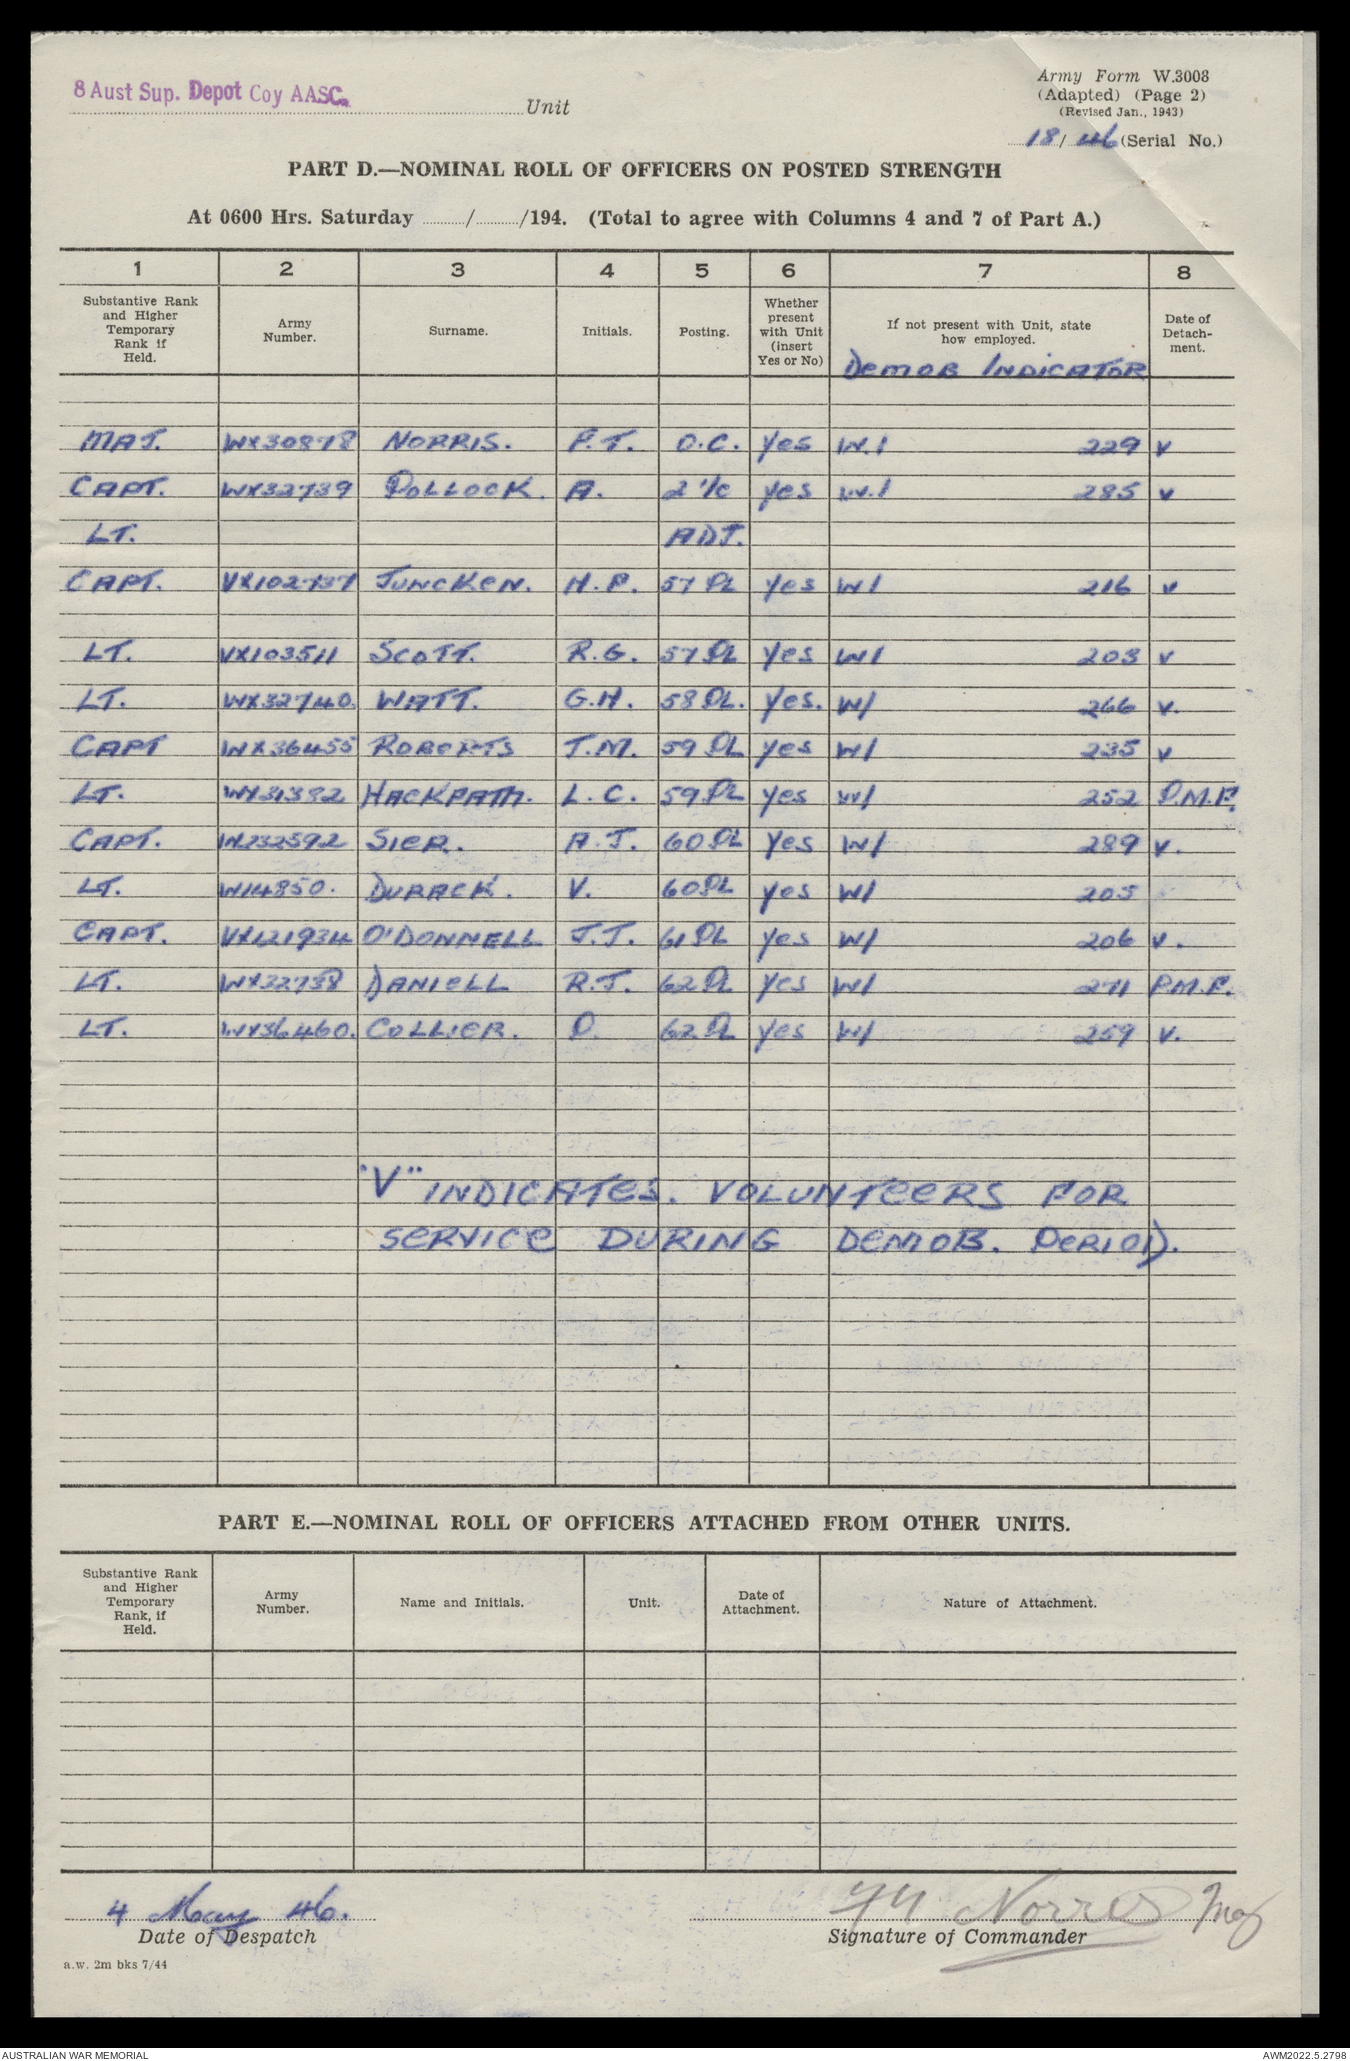 8 Aust Sup. Depot Coy AASC. Unit
Army Form W.3008
(Adapted) (Page 2)
(Revised Jan., 1943)
18/46 (Serial No.)
PART D.—NOMINAL ROLL OF OFFICERS ON POSTED STRENGTH
At 0600 Hrs. Saturday ........../........../194. (Total to agree with Columns 4 and 7 of Part A.)
1 2 3 4 5 6 7 8
Substantive Rank and Higher Temporary Rank if Held. Army Number. Surname. Initials. Posting. Whether present with Unit (insert Yes or No) If not present with Unit, state how employed. Date of Detach-ment.
DEMOB INDICATOR
MAJ. WX30878 NORRIS. F.T. O.C. Yes W.1 229 V
CAPT. WX32739 POLLOCK. A. 2 I/C Yes W.1 285 V
LT. ADJ.
CAPT. VX102737 JUNCKEN. H.P. 57 PL Yes W1 216 V
LT. VX103511 SCOTT. R.G. 57 PL Yes W1 203 V
LT. WX32740. WATT. G.H. 58 PL. Yes. W1 266 V.
CAPT WX36455 ROBERTS J.M. 59 PL Yes W1 235 V
LT. WX31382 HACKPATH. L.C. 59 PL Yes W1 252 P.M.F.
CAPT. WX32592 SIER. A.J. 60 PL Yes W1 289 V.
LT. W14850. DURACK. V. 60 PL Yes W1 205
CAPT. VX121934 O'DONNELL J.J. 61 PL Yes W1 206 V.
LT. WX32738 DANIELL R.J. 62 PL Yes W1 271 P.M.F.
LT. WX36460. COLLIER. P. 62 PL Yes W1 259 V.
"V" INDICATES. VOLUNTEERS FOR
SERVICE DURING DEMOB. PERIOD.
PART E.—NOMINAL ROLL OF OFFICERS ATTACHED FROM OTHER UNITS.
Substantive Rank and Higher Temporary Rank, if Held. Army Number. Name and Initials. Unit. Date of Attachment. Nature of Attachment.
4 May 46. Norris Maj
Date of Despatch Signature of Commander
a.w. 2m bks 7/44
AUSTRALIAN WAR MEMORIAL AWM2022.5.2798